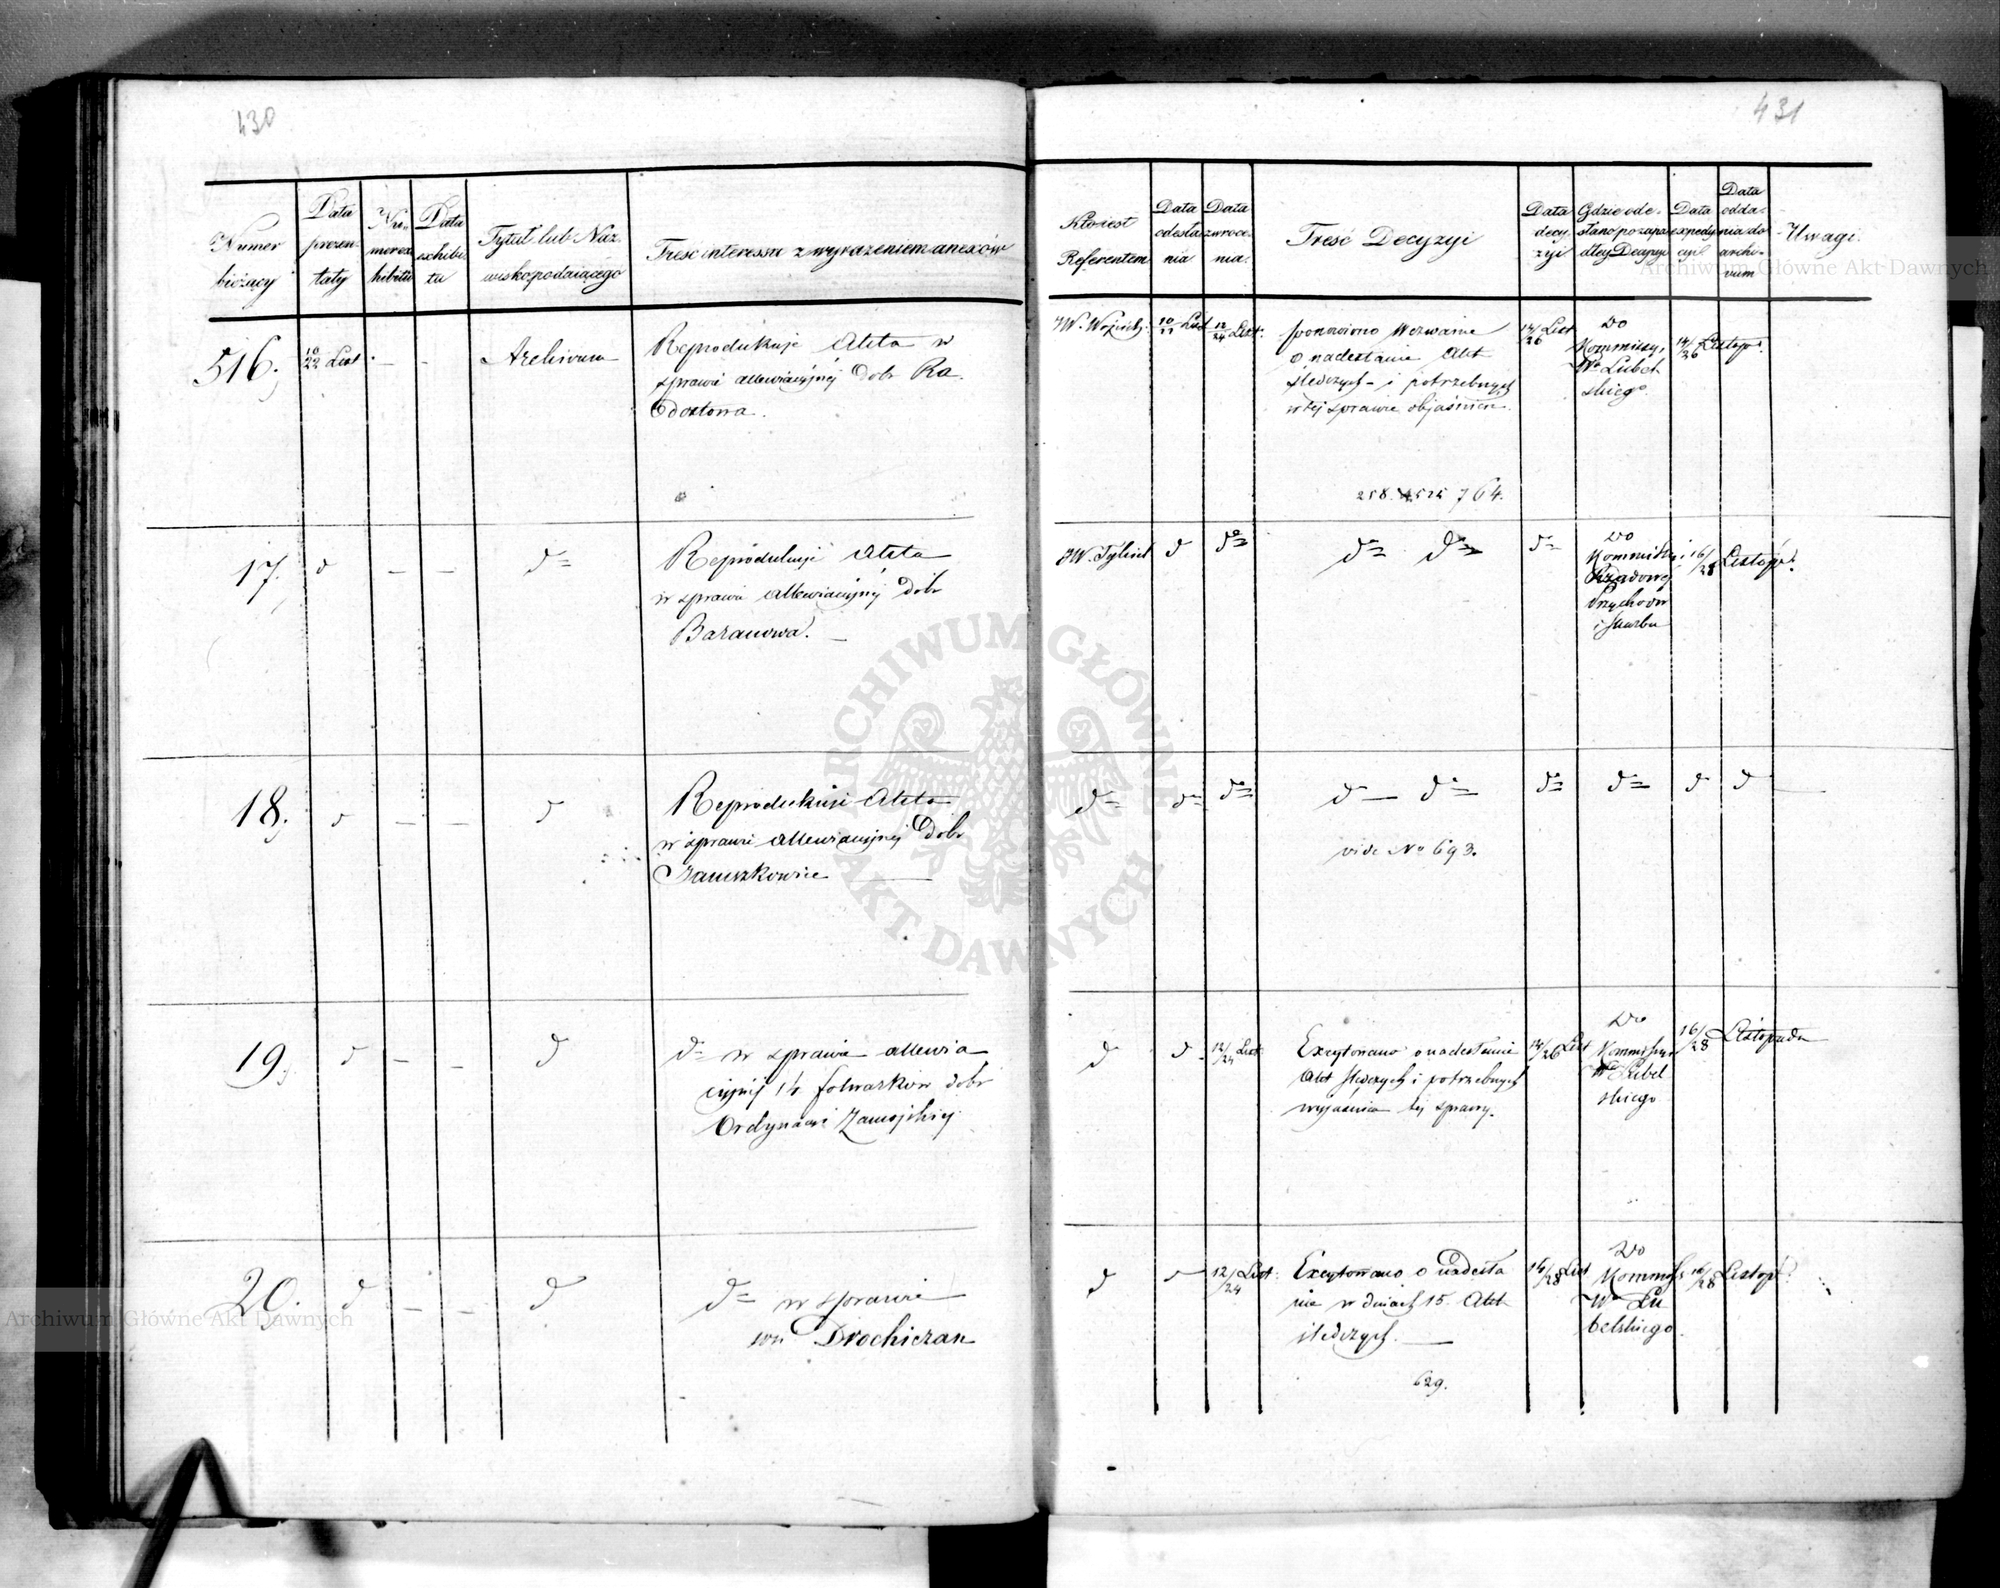 430
Numer
bieżący
Data
prezen-
taty
Nu-
mer ex
hibitu
Data
exhibi-
tu
Tytuł lub Naz-
wisko podającego
Treść interessu z wyrażeniem anexów
516.
10/22 List
-
-
Archiwum
Reprodukuje Akta w
sprawie allewiacyjnéj dobr Ra
dostowa.
17.
d
-
-
do
Reprodukuje Akta
w sprawie allewiacyjnéj dobr
Baranowa.
18.
d
-
-
d
Reprodukuje Akta
w sprawie allewiacyjnéj dobr
Januszkowice
19.
d
-
-
d
do w sprawie allewia
cyjnéj 14 folwarków dobr
Ordynacyi Zamojskiéj
20.
d
-
-
d
do w sprawie
wsi Drochiczan
431
Kto jest
Referentem
Data
odesła
nia
Data
zwróce-
nia.
Treść Decyzyi
Data
decy-
zyi
Gdzie ode-
słano po zapa
dłey Decyzyi
Data
expedy
cyi
Data
odda-
nia do
archi-
vum
Uwagi.
JW. Wojciech.
10/22 List
12/24 List.
ponowiono Wezwanie
o nadesłanie Akt
śledczych i potrzebnych
w téj sprawie objaśnień.
258. 525 764.
14/26 List
Do
Kommissyi
Wa Lubel
skiego
14/26 Listop.
JW. Tykiel
d
do
do do
do
Do
Kommissyi
Rządowéj
Przychodów
i Skarbu
16/28 Listop.
do
do
do
d do
vide No 693.
do
do
d
d
d
d
12/24 List
Excytowano o nadesłanie
Akt śledczych i potrzebnych
wyjaśnień téj sprawy.
14/26 List
Do
Kommissyi
W Lubel
skiego
16/28 Listopada
d
d
12/24 List.
Excytowano o nadesła
nie w dniach 15. Akt
śledczych.
629.
16/28 List
Do
Kommiss
Wa Lu
belskiego.
16/28 Listop.
Archiwum Główne Akt Dawnych
ARCHIWUM GŁÓWNE AKT DAWNYCH
Archiwum Główne Akt Dawnych